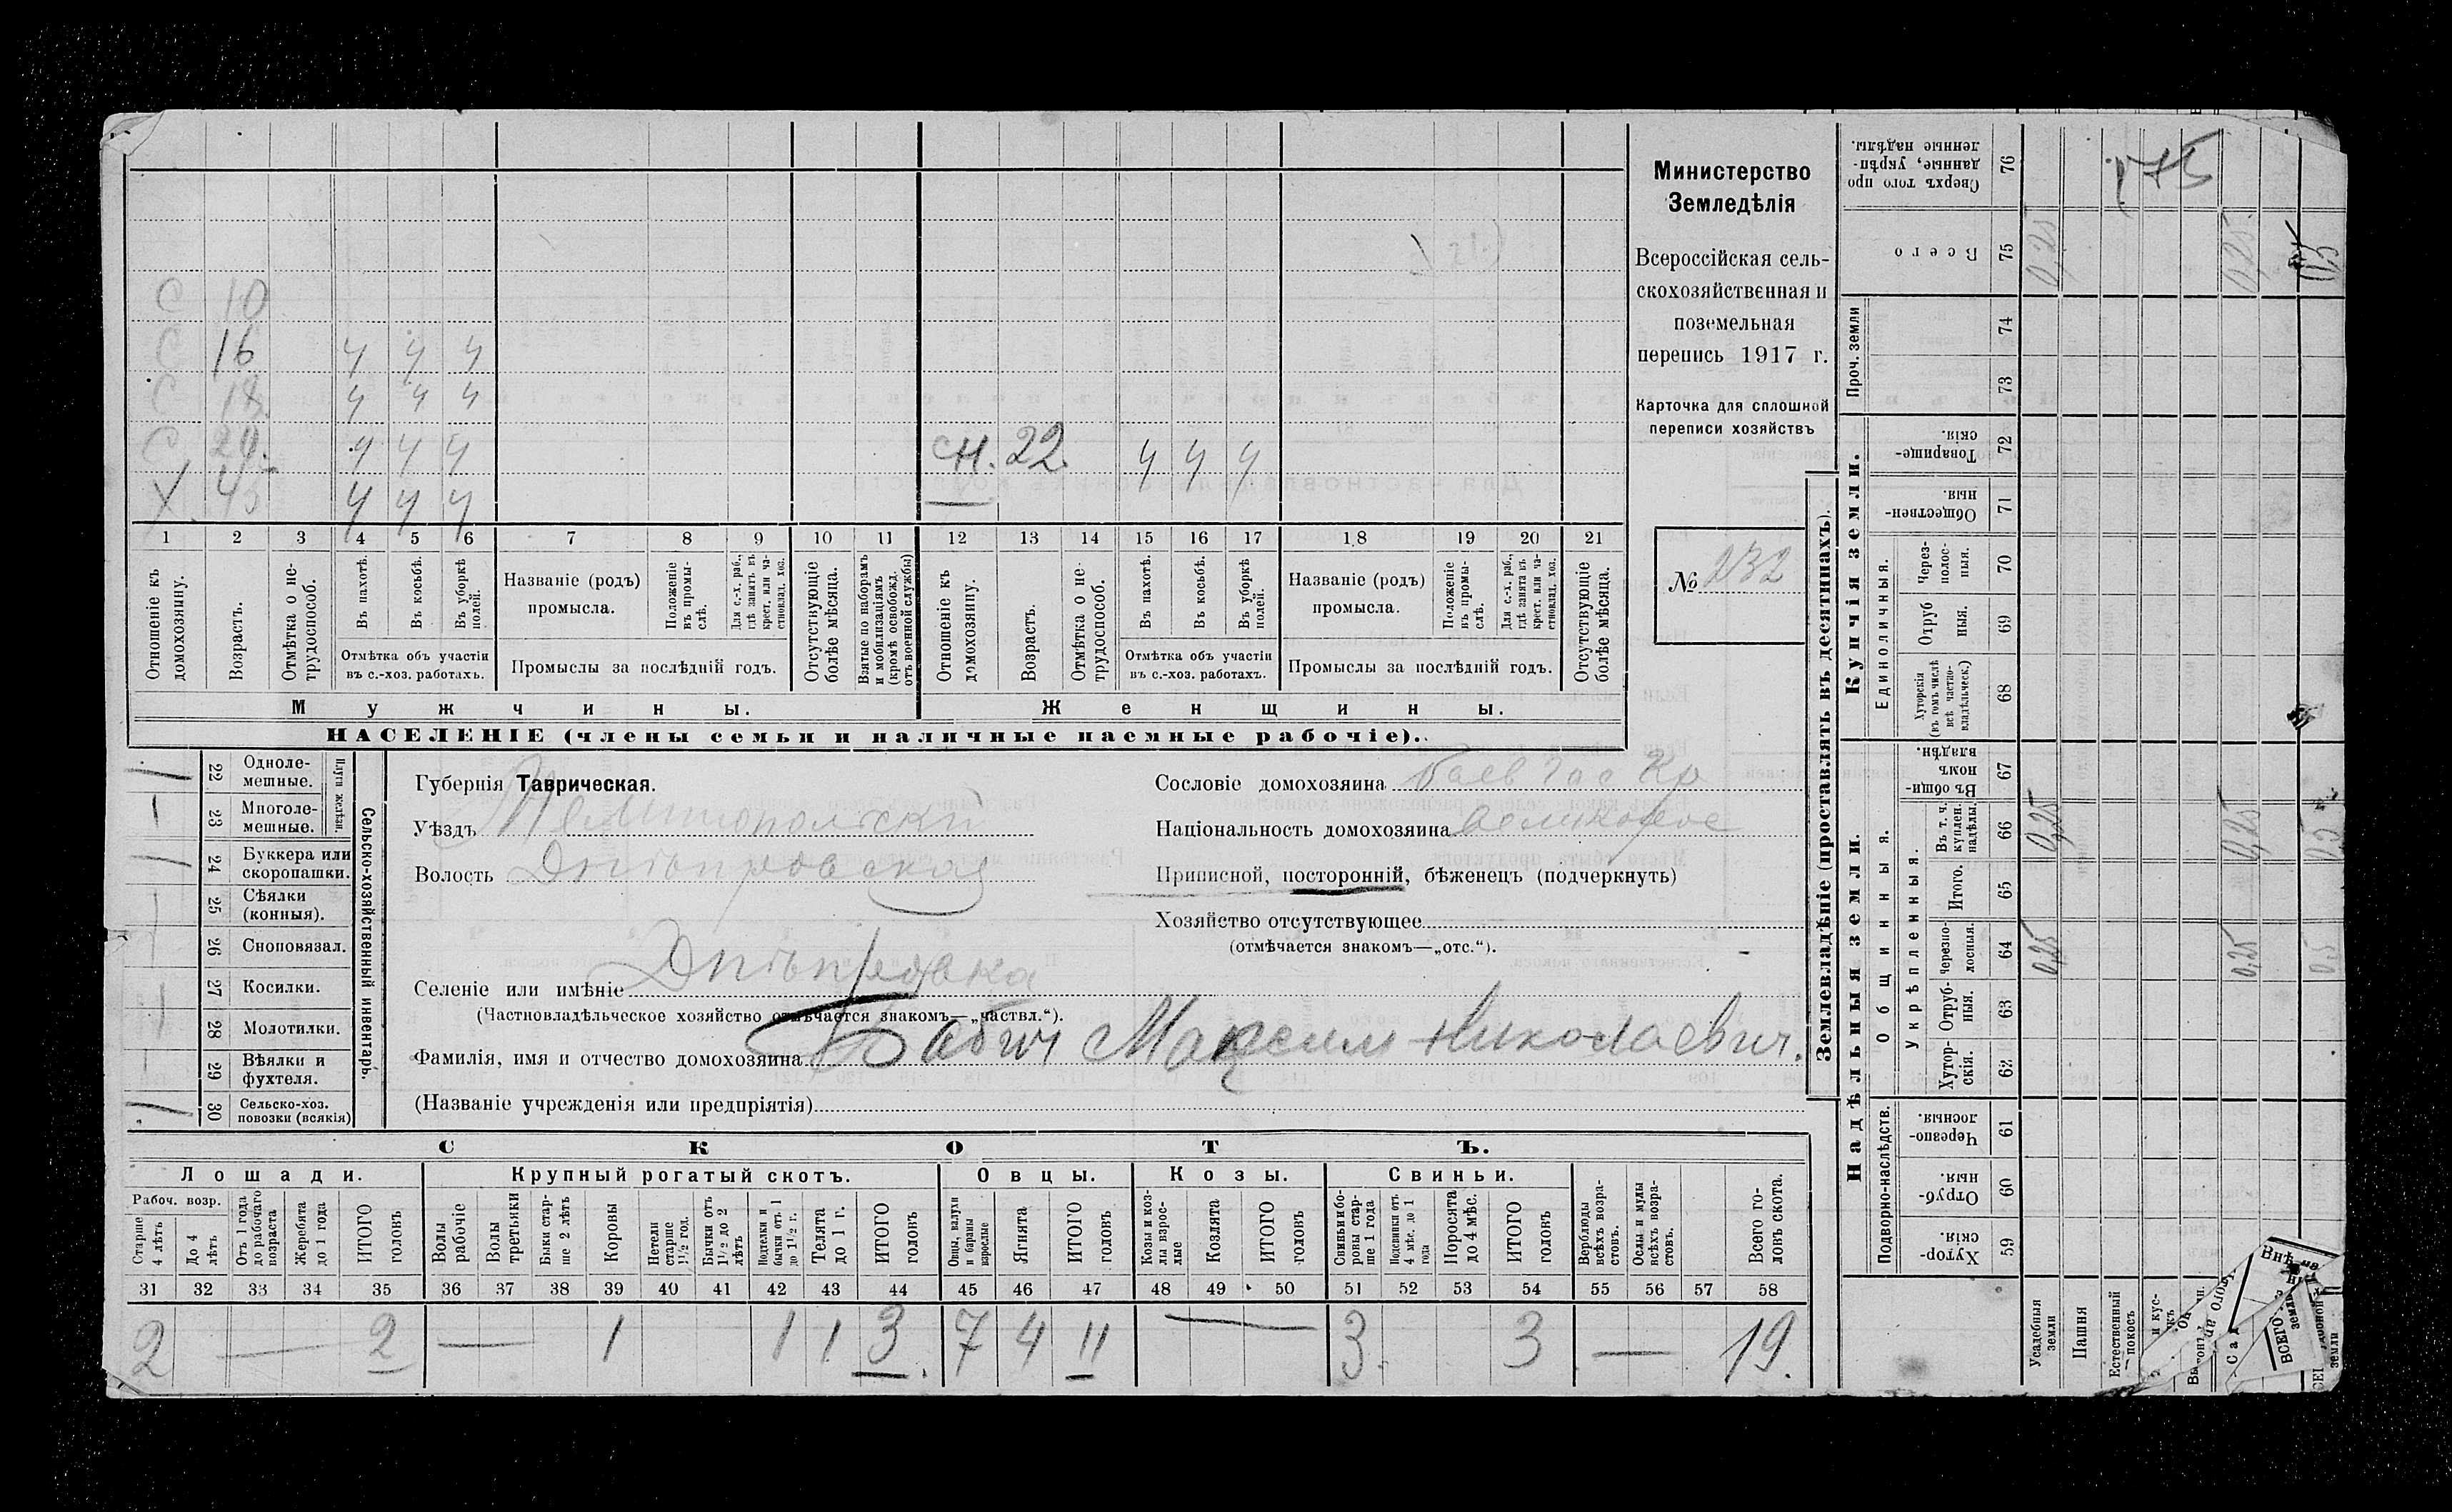 С 10
С 16 ч ч ч
С 18 ч ч ч
С 20. ч ч ч сн. 22 ч ч ч
Х 45 ч ч ч
1 2 3 4 5 6 7 8 9 10 11 12 13 14 15 16 17 18 19 20 21
Отношеніе къ домохозяину.
Возрастъ.
Отмѣтка о нетрудоспособ.
Въ пахотѣ.
Въ косьбѣ.
Въ уборкѣ полей.
Отмѣтка объ участіи въ с.-хоз. работахъ.
Названіе (родъ) промысла.
Положеніе въ промыслѣ.
Для с.-х. раб., гдѣ занятъ въ крест. или частновлад. хоз.
Промыслы за послѣдній годъ.
Отсутствующіе болѣе мѣсяца.
Взятые по наборамъ и мобилизаціямъ (кромѣ освобожд. отъ военной службы)
Отношеніе къ домохозяину.
Возрастъ.
Отмѣтка о нетрудоспособ.
Въ пахотѣ.
Въ косьбѣ.
Въ уборкѣ полей.
Отмѣтка объ участіи въ с.-хоз. работахъ.
Названіе (родъ) промысла.
Положеніе въ промыслѣ.
Для с.-х. раб., гдѣ занята въ крест. или частновлад. хоз.
Промыслы за послѣдній годъ.
Отсутствующіе болѣе мѣсяца.
Мужчины. Женщины.
НАСЕЛЕНІЕ (члены семьи и наличные наемные рабочіе).
Министерство
Земледѣлія
Всероссійская сель-
скохозяйственная и
поземельная
перепись 1917 г.
Карточка для сплошной
переписи хозяйствъ
№ 232
22 Однолемешные.
23 Многолемешные.
Плуги желѣзн.
24 Буккера или скоропашки.
25 Сѣялки (конныя).
26 Сноповязал.
27 Косилки.
28 Молотилки.
29 Вѣялки и фухтеля.
30 Сельско-хоз. повозки (всякія)
Сельско-хозяйственный инвентарь.
Губернія Таврическая.
Уѣздъ Мелитопольскій
Волость Днѣпровская
Селеніе или имѣніе Днѣпровка
(Частновладѣльческое хозяйство отмѣчается знакомъ—„частвл.“).
Фамилія, имя и отчество домохозяина Бабич Максим Николаевич.
(Названіе учрежденія или предпріятія)
Сословіе домохозяина
Національность домохозяина
Приписной, посторонній, бѣженецъ (подчеркнуть)
Хозяйство отсутствующее
(отмѣчается знакомъ—„отс.“).
СКОТЪ.
Лошади. Крупный рогатый скотъ. Овцы. Козы. Свиньи.
Рабоч. возр.
Старше 4 лѣтъ
До 4 лѣтъ
Отъ 1 года до рабочаго возраста
Жеребята до 1 года
ИТОГО головъ
Волы рабочіе
Волы третьяки
Быки старше 2 лѣтъ
Коровы
Нетели старше 1½ год.
Бычки отъ 1½ до 2 лѣтъ
Подтелки и бычки отъ 1 до 1½ г.
Телята до 1 г.
ИТОГО головъ
Овцы, валухи и бараны взрослые
Ягнята
ИТОГО головъ
Козы и козлы взрослые
Козлята
ИТОГО головъ
Свиньи и боровы старше 1 года
Подсвинки отъ 4 мѣс. до 1 года
Поросята до 4 мѣс.
ИТОГО головъ
Верблюды всѣхъ возрастовъ.
Ослы и мулы всѣхъ возрастовъ.
Всего головъ скота.
31 32 33 34 35 36 37 38 39 40 41 42 43 44 45 46 47 48 49 50 51 52 53 54 55 56 57 58
2 — 2 — 1 1 1 3. 7 4 11 — 3. 3 — 19.
Землевладѣніе (проставлять въ десятинахъ).
Сверхъ того проданные, укрѣпленные надѣлы. 76
Всего 75 0,25 0,25 0,5
Проч. земли 74 73
Купчія земли.
Товарищескія. 72
Общественныя. 71
Единоличныя.
Черезполосныя. 70
Отрубныя. 69
Хуторскія (въ томъ числѣ всѣ частновладѣльческ.) 68
Надѣльныя земли.
Общинныя.
Въ общинномъ владѣн. 67
Укрѣпленныя.
Въ т. ч. куплен. надѣлы. 66 0,25 0,25 0,5
Итого. 65
Черезполосныя. 64 0,25 0,25 0,5
Отрубныя. 63
Хуторскія. 62
Подворно-наслѣдств.
Черезполосныя. 61
Отрубныя. 60
Хуторскія. 59
Усадебныя земли
Пашня
Естественный покосъ
ВСЕГО
земли